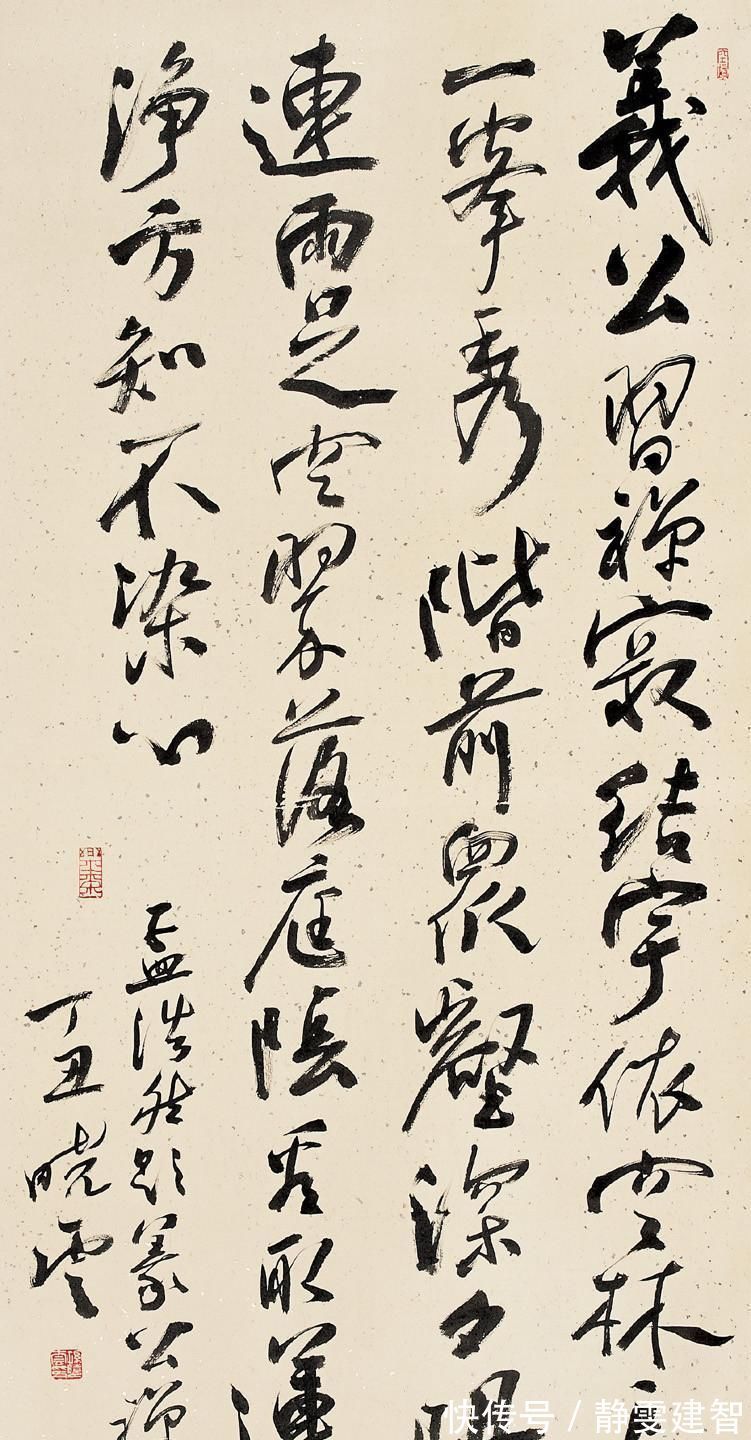 義公習禪寂結宇依空林
一峯秀階前眾壑深夕
連雨足空翠落庭陰看取蓮
淨方知不染心
孟浩然題義公禪
丁丑曉雲
快传号 / 静雯建智